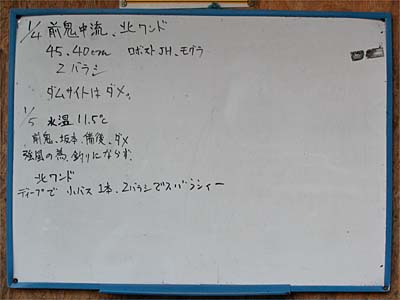 1/4 前鬼中流、北ワンド
45.40cm ロボストJH、モグラ
2バラシ
ダムサイトはダメ。
1/5 水温 11.5℃
前鬼、坂本、備後、ダメ
強風の為、釣りにならず
北ワンド
ディープで 小バス 1本、2バラシでスバラシィー